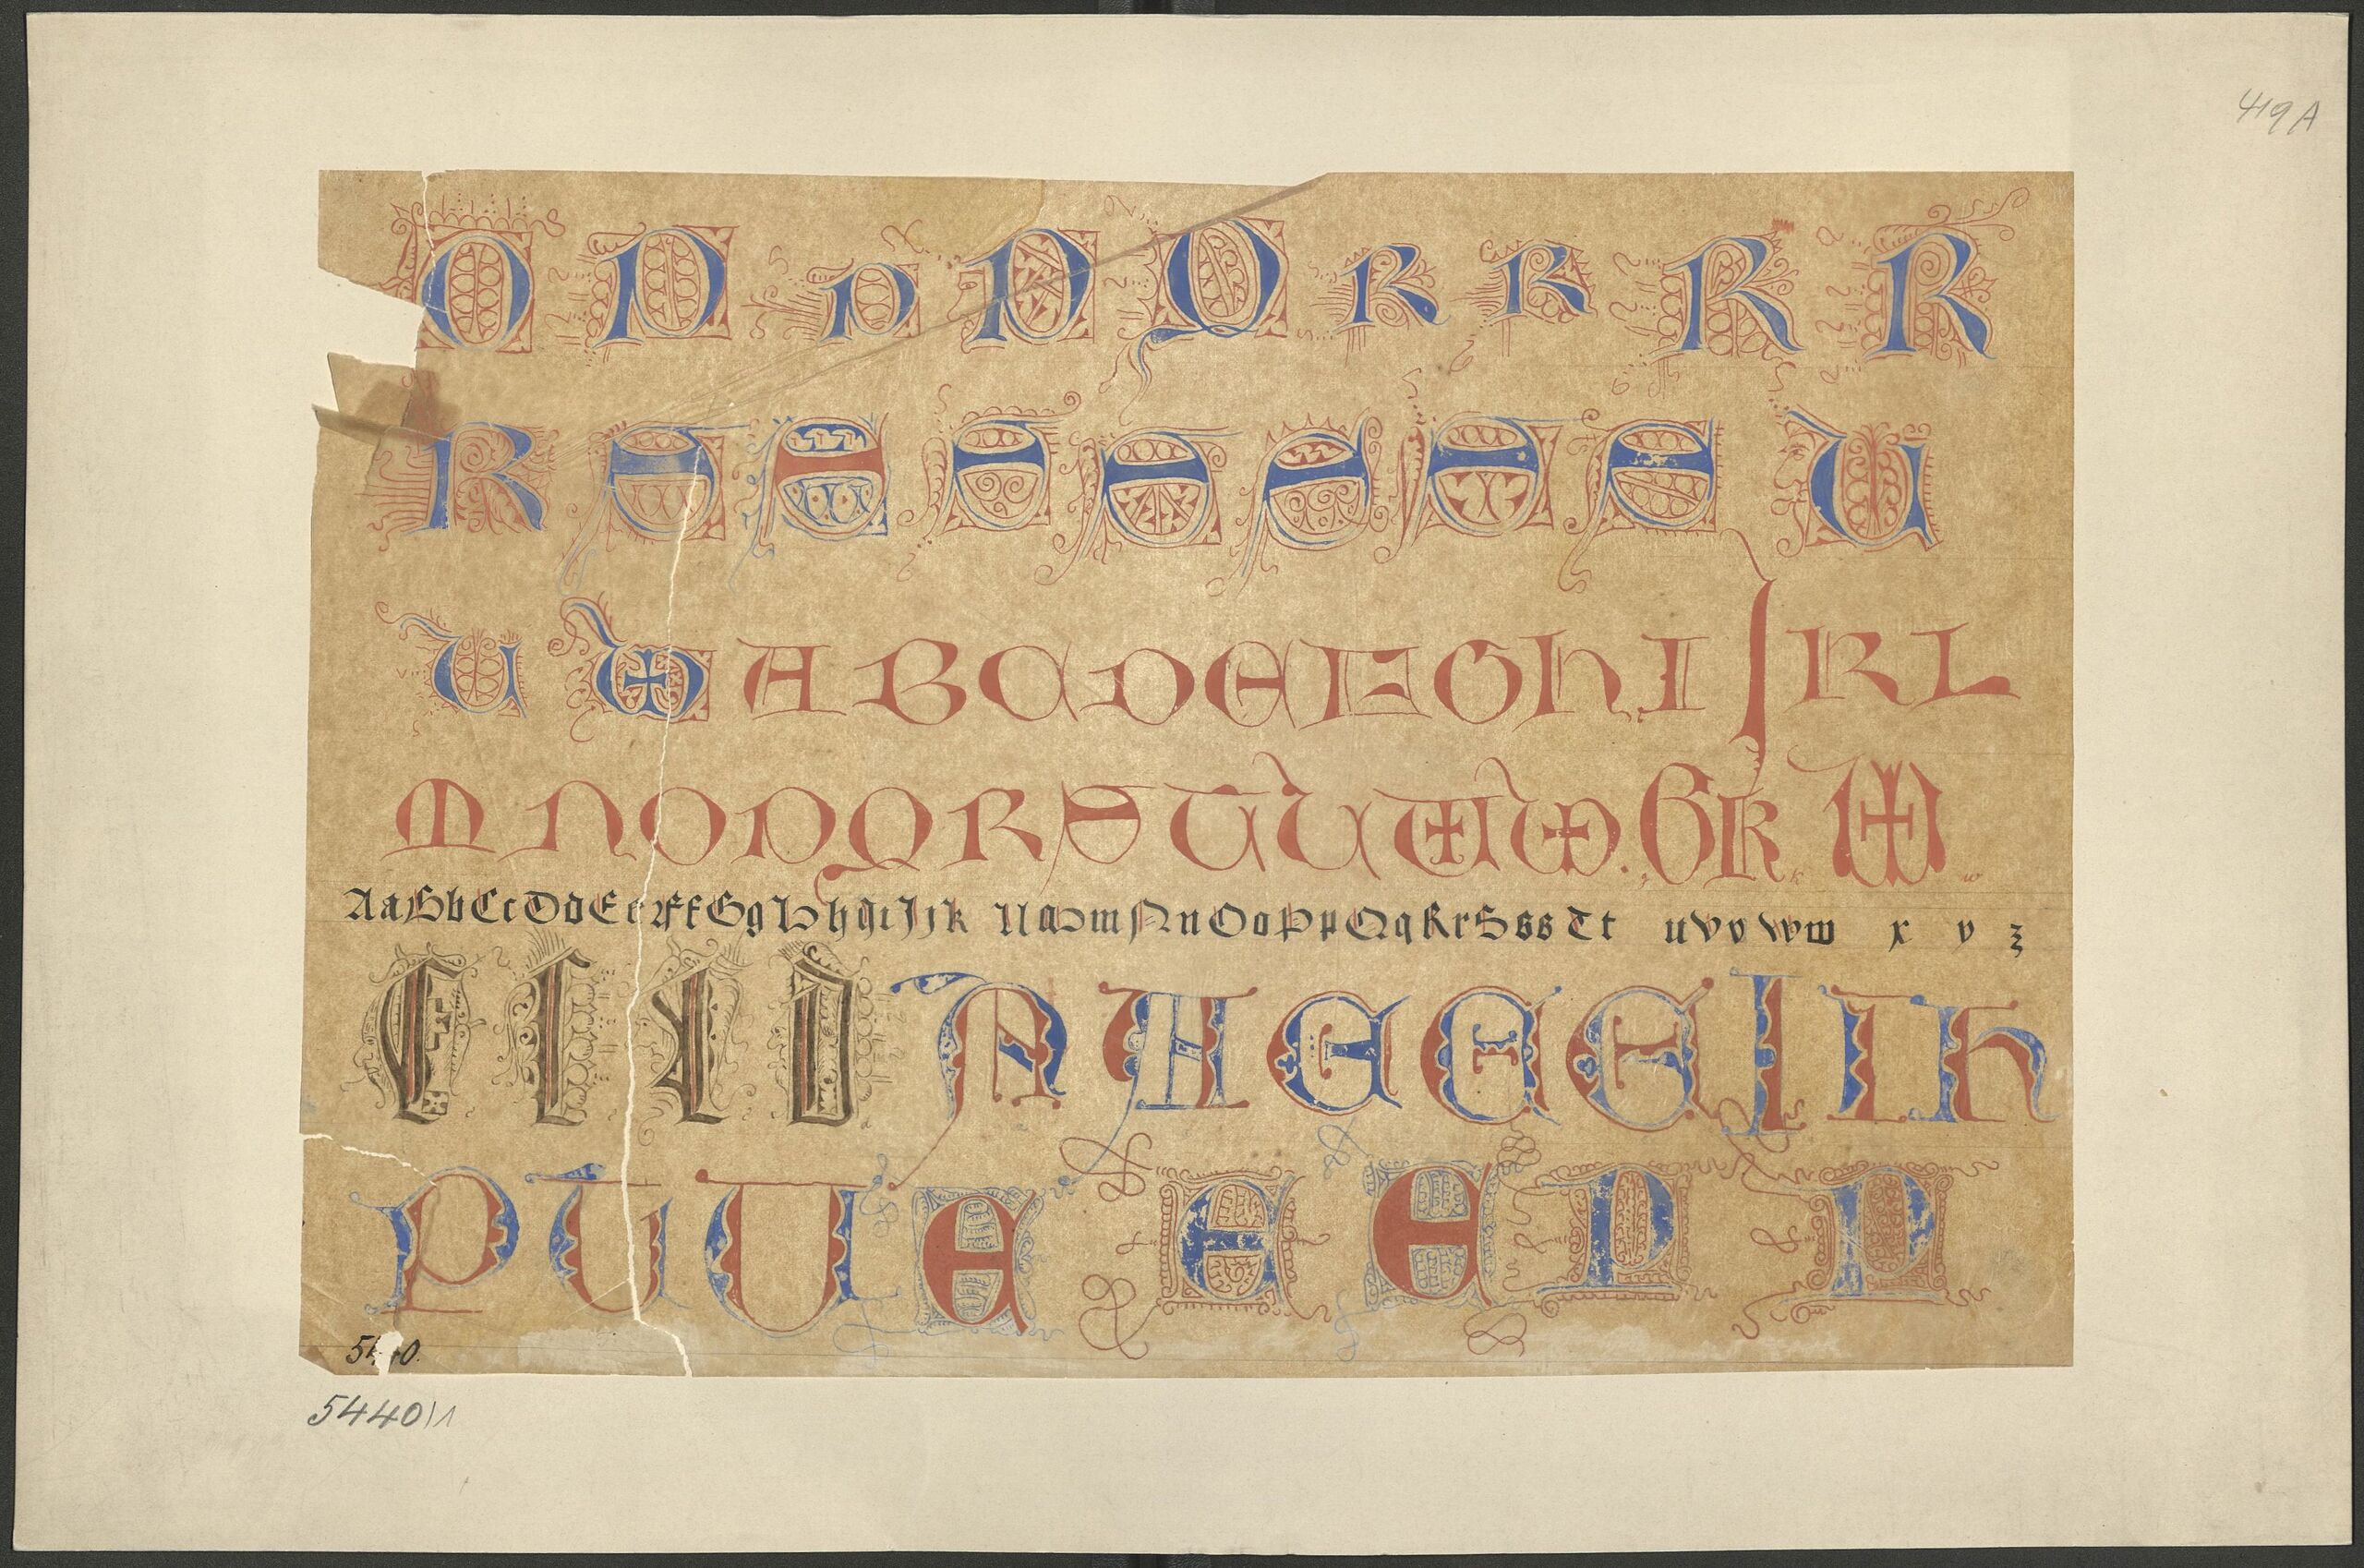 419A
O P P P Q R R R R
R S S S S S S S U
U W A B C D E F G H I J R L
M N O P Q R S T U W W G K k W w
A a B b C c D d E e F f G g H h I i J j k L l a M m N n O o P p Q q R r S s s T t u V v W w x y z
E I A D A A E E E I I H
P U U E E E P P
5440.
5440/1